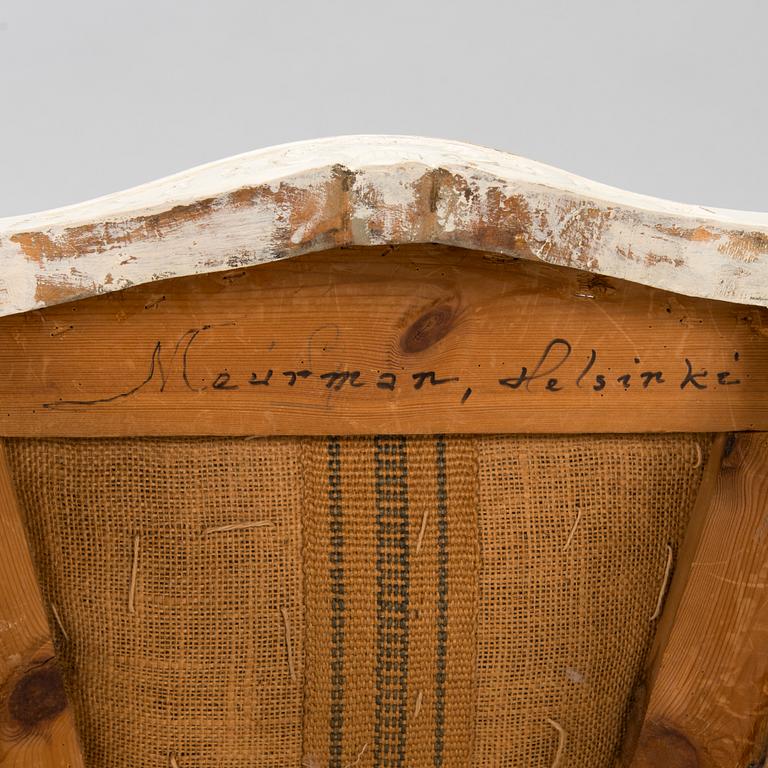 Meurman, Helsinki